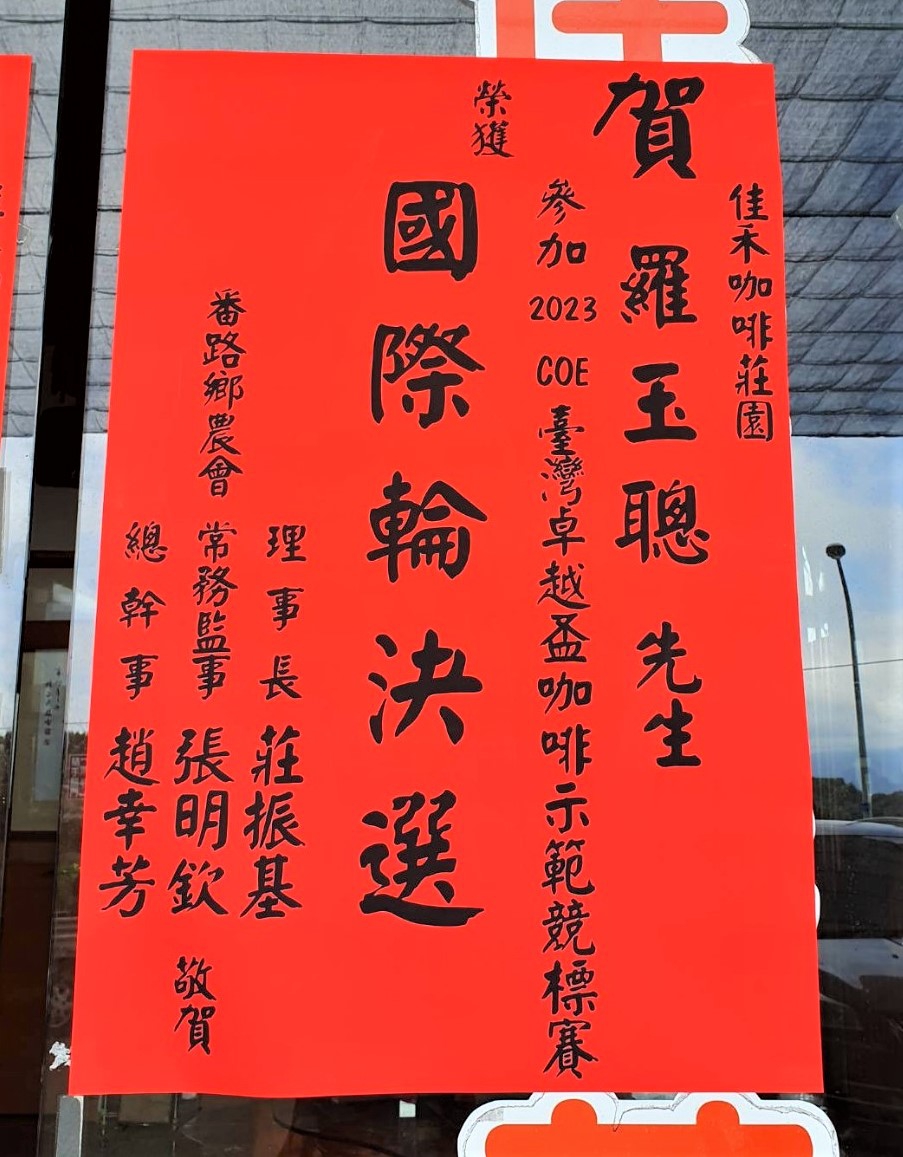 佳禾咖啡莊園
賀羅玉聰先生
參加2023 COE臺灣卓越盃咖啡示範競標賽
榮獲
國際輪決選
理事長莊振基
番路鄉農會常務監事張明欽敬賀
總幹事趙幸芳